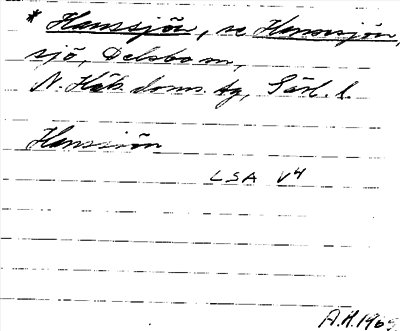 * Hamsjön, se Hansesjön,
sjö, Delsbo sn,
N. Häls. doms. Ag, Gävl. l.
Hamsiön
LSA V4
A.H. 1965